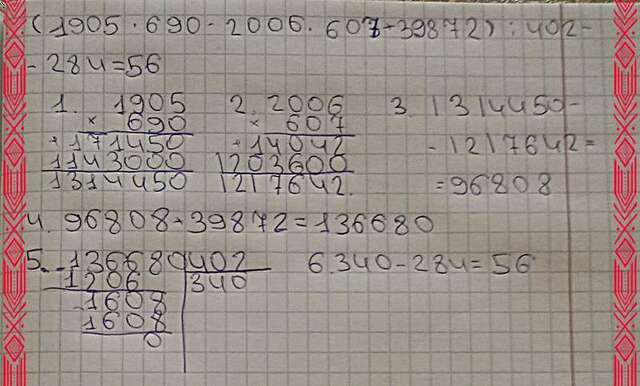 (1905 · 690 - 2006 · 607 + 39872) : 402 -
- 284 = 56
1. 1905 2. 2006 3. 1314450 -
× 690 × 607 - 1217642 =
+ 171450 + 14042 = 96808
1143000 1203600
1314450 1217642.
4. 96808 + 39872 = 136680
5. - 136680 402 6. 340 - 284 = 56
1206 340
- 1608
1608
0